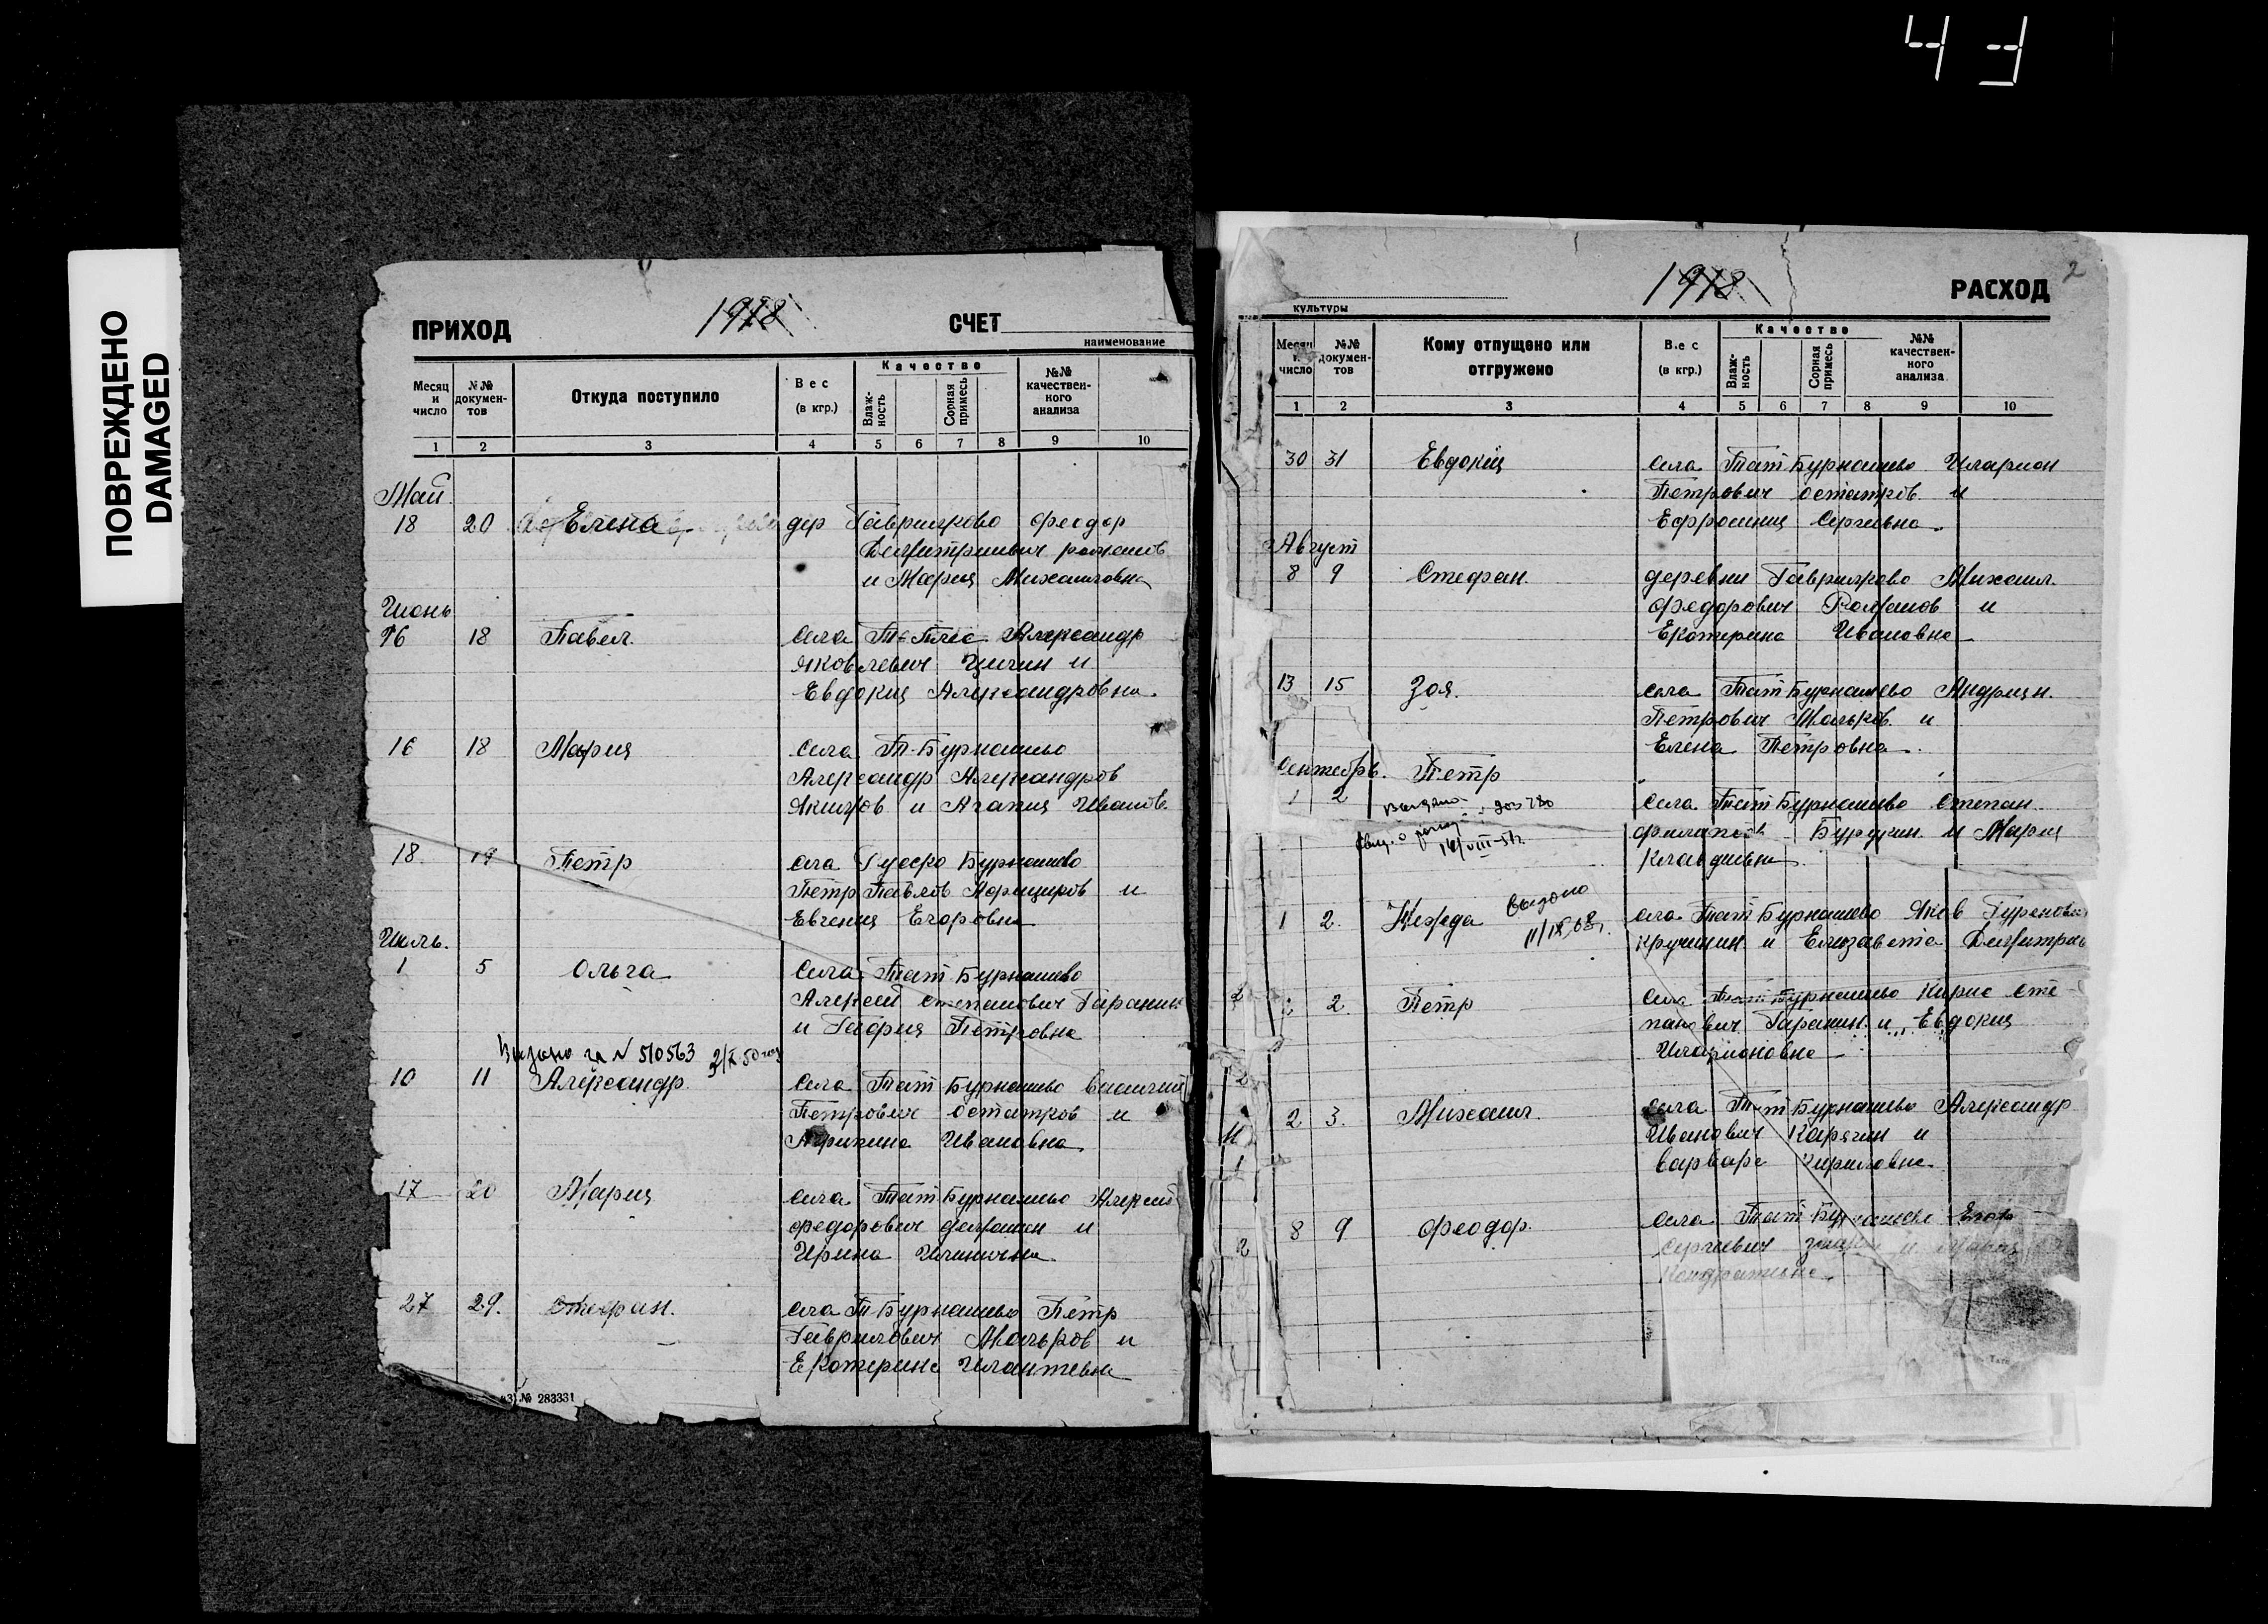 43
ПОВРЕЖДЕНО
DAMAGED
1918
ПРИХОД
СЧЕТ
наименование
Месяц и число
№№ документов
Откуда поступило
Вес (в кгр.)
Качество
Влажность
Сорная примесь
№№ качественного анализа
1 2 3 4 5 6 7 8 9 10
Май
18 20 Елена дер Гаврилково Феодор
Дмитриевич
и Мария Михаиловна
Июнь
16 18 Павел села Александр
Яковлевич и
Евдокия Александровна
16 18 Мария села Т-Бурнашево
Александр Александров
Якимов и Агапия Иванов.
18. 19 Петр села Руско Бурнашево
Петр Павлов и
Евгения Егоровна
Июль.
1 5 Ольга села Тат Бурнашево
Алексей Степанович Гаранин
и Петровна
Выдано № 510563
10 11 Александр села Тат Бурнашево Василий
Петрович Остатков и
Агрипина Ивановна
17 20 Мария села Тат Бурнашево Алексей
Федорович и
Ирина
27 29. Стефан. села Т-Бурнашево Петр
Гаврилович Мальков и
Екатерина
№ 283331
1918
2
РАСХОД
культуры
Месяц и число
№№ документов
Кому отпущено или отгружено
Вес (в кгр.)
Качество
Влажность
Сорная примесь
№№ качественного анализа
1 2 3 4 5 6 7 8 9 10
30 31 Евдокия села Тат Бурнашево Иларион
Петрович Остатков и
Ефросиния Сергивна
Август
8 9 Стефан. деревни Гаврилково Михаил
Федорович Романов и
Екатерина Ивановна
13 15 Зоя. села Тат Бурнашево Андриян.
Петрович Мальков и
Елена Петровна
Сентябрь. Петр
1 2 села Тат Бурнашево Степан
Выдано
14/VIII-51г.
Бурдин и Мария
Клавдиевна
1 2. села Тат Бурнашево Яков
Выдано
и Елизавета
2. Петр села Тат Бурнашево Кирис Сте
панович Гаранин и Евдокия
Иларионовна
2 3. Михаил. села Тат Бурнашево Александр
Иванович Карягин и
Варвара Кириловна
8 9 Феодор. села Тат Бурнашево
Сергиевич и
Кондратьевна